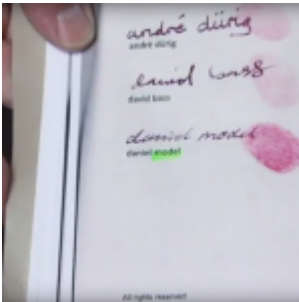 andré dürig
andré dürig
daniel bass
david bass
daniel model
daniel model
All rights reserved